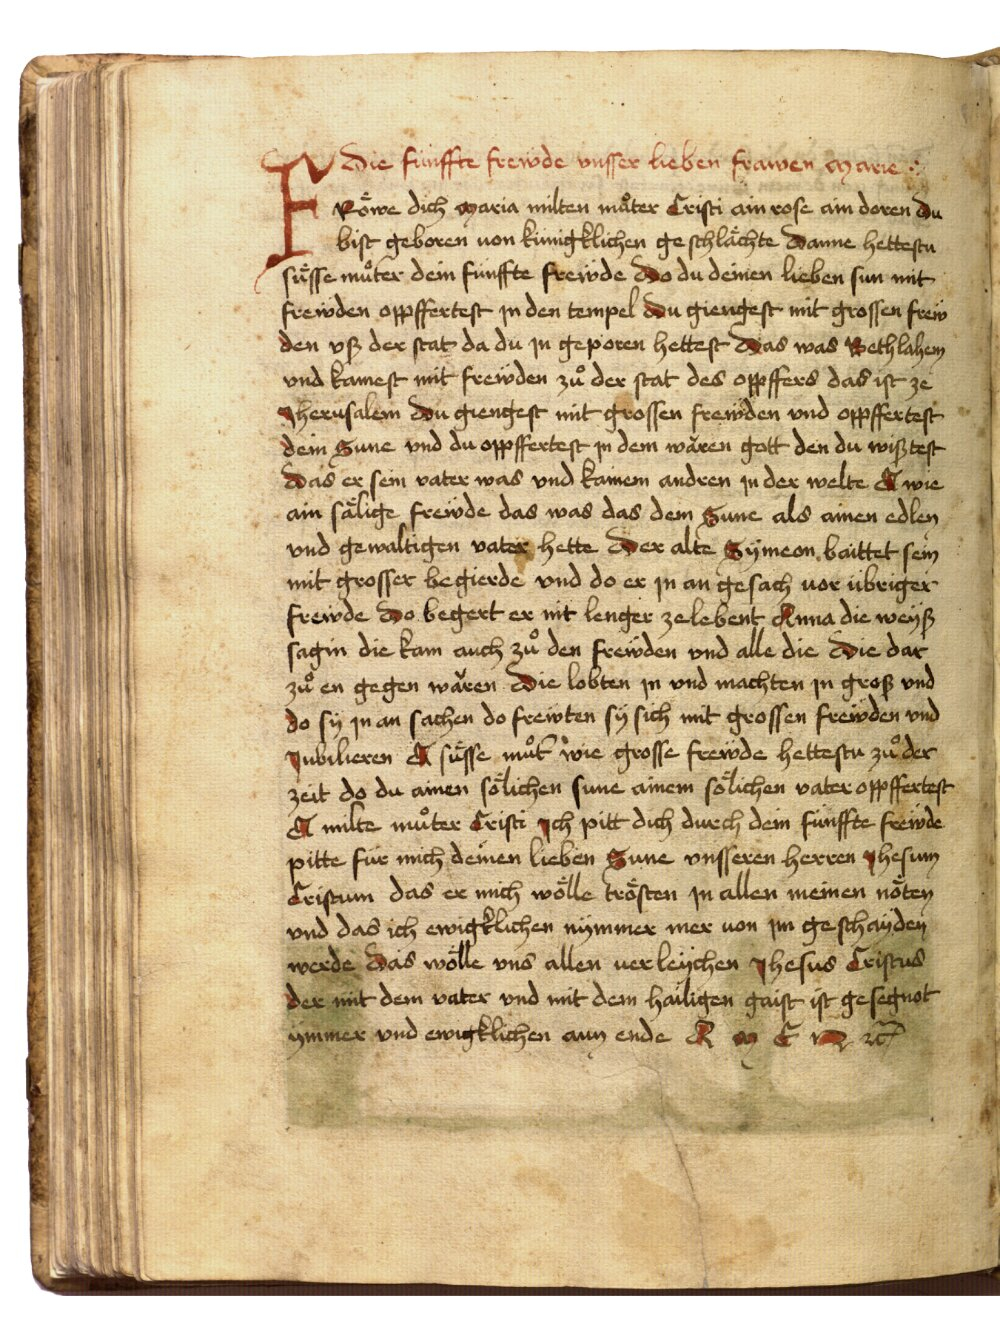 Die fünffte frewde vnsser lieben frawen Marie
FRöwe dich Maria milten muͦter Cristi ain rose ain doren Du
bist geboren von künigklichen geschlächte Danne hettestu
süsse muͦter dein fünffte frewde Do du deinen lieben sun mit
frewden oppffertest jn den tempel Du giengest mit grossen frew
den vß der stat da du jn geporen hettest Das was Bethlahem
vnd kamest mit frewden zuͦ der stat des oppffers das ist ze
Jherusalem Du giengest mit grossen frewden vnd oppffertest
dein Sune vnd du oppffertest jn dem wären gott den du wißtest
Das er sein vater was vnd kainem andren jn der welte A wie
ain sälige frewde das was das dem Sune als ainen edlen
vnd gewaltigen vater hette Der alte Sÿmeon baittet sein
mit grosser begierde vnd do er jn an gesach vor übriger
frewde Do begert er nit lenger ze lebent Anna die weÿß
sagin die kam auch zuͦ den frewden vnd alle die Die dar
zuͦ en gegen wären Die lobten jn vnd machten jn groß vnd
do sÿ jn an sachen do frewten sÿ sich mit grossen frewden vnd
Jubilieren A süsse muͦt̄ wie grosse frewde hettestu zuͦ der
zeit do du ainen sölichen sune ainem sölichen vater oppffertest
A milte muͦter Cristi Ich pitt dich durch dein fünffte frewde
pitte für mich deinen lieben Sune vnsseren herren Jhesum
Cristum das er mich wölle trösten jn allen meinen nöten
vnd das ich ewigklichen nÿmmer mer von jm geschaÿden
werde Das wölle vns allen verleÿchen Jhesus Cristus
der mit dem vater vnd mit dem hailigen gaist ist gesegnot
ÿmmer vnd ewigklichen aun ende A M E N